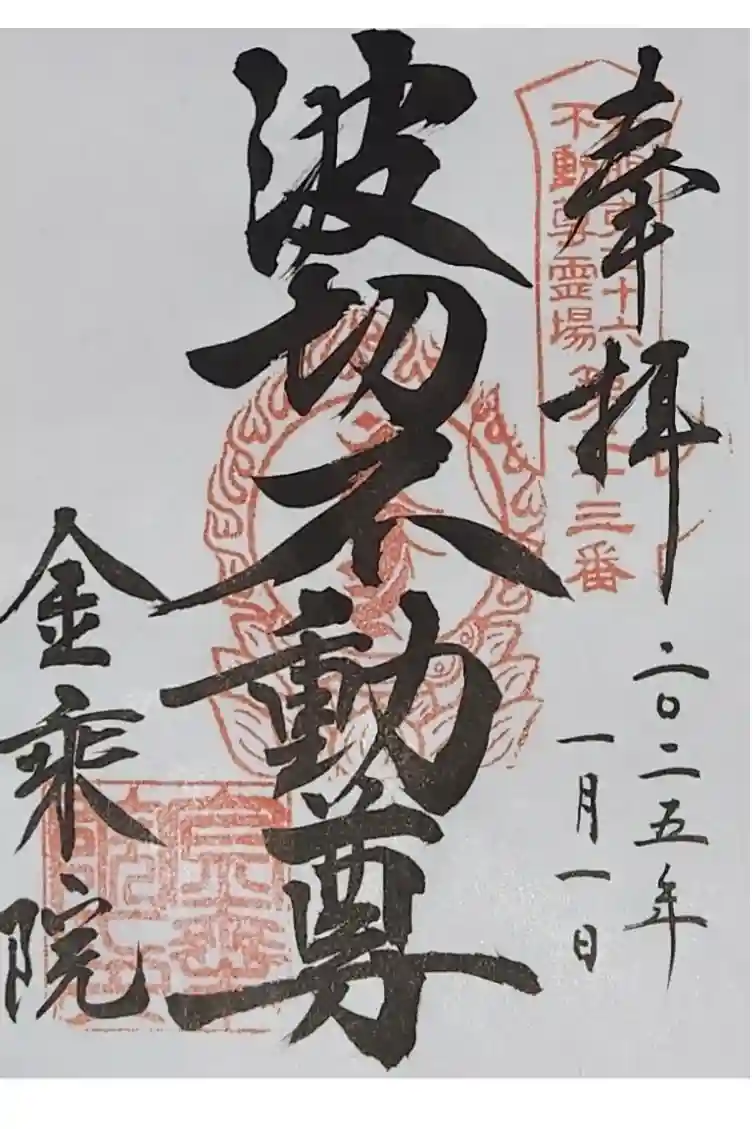 奉拝
二〇二五年
一月一日
関東三十六
不動尊霊場
第十三番
波切不動尊
金乗院